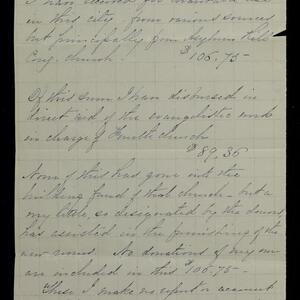 I have received for
in this city - from various sources
but principally from Asylum Hill
Cong. Church. $106.75-
Of this sum I have disbursed in
direct aid of the evangelistic work
in charge of Fourth church
$89,36
None of this has gone into the
building fund of that church - but a
very little, so designated by the donors,
has assisted in the furnishing of the
new rooms. No donations of my own
are included in this $106.75-
I make no report - account